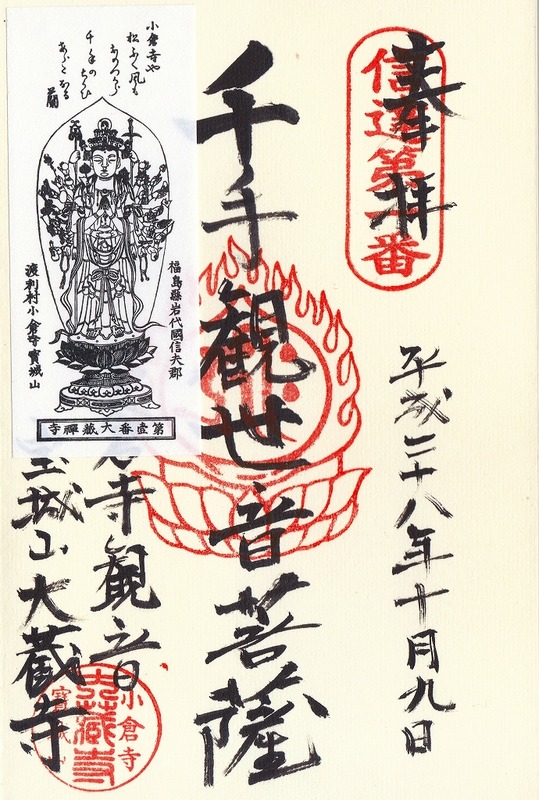 奉拝
信達第一番
平成二十八年十月九日
千手観世音菩薩
寺観音
宝城山大蔵寺
小倉寺
大蔵寺
小倉寺や
松ふく風も
おのつから
千手のちかひ
あふくなる
福島縣岩代國信夫郡
渡利村小倉寺寶城山
第壹番大蔵禪寺